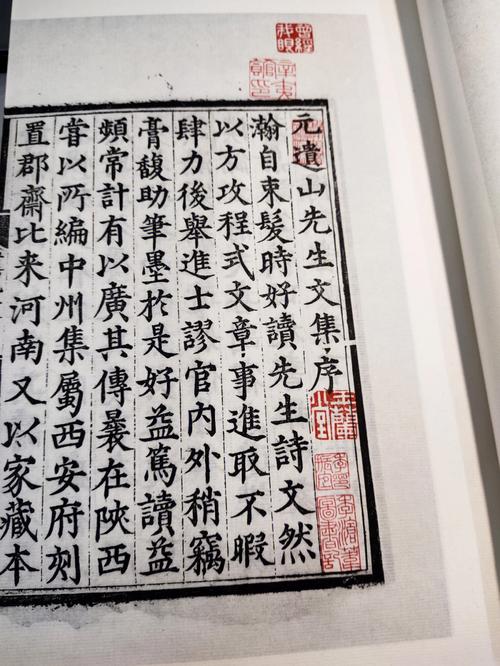 元遺山先生文集序
瀚自束髮時好讀先生詩文然
以方攻程式文章事進取不暇
肆力後舉進士謬官内外稍竊
膏馥助筆墨於是好益篤讀益
頻常計有以廣其傳曩在陝西
嘗以所編中州集屬西安府刻
置郡齋比来河南又以家藏本
曾經
我眼